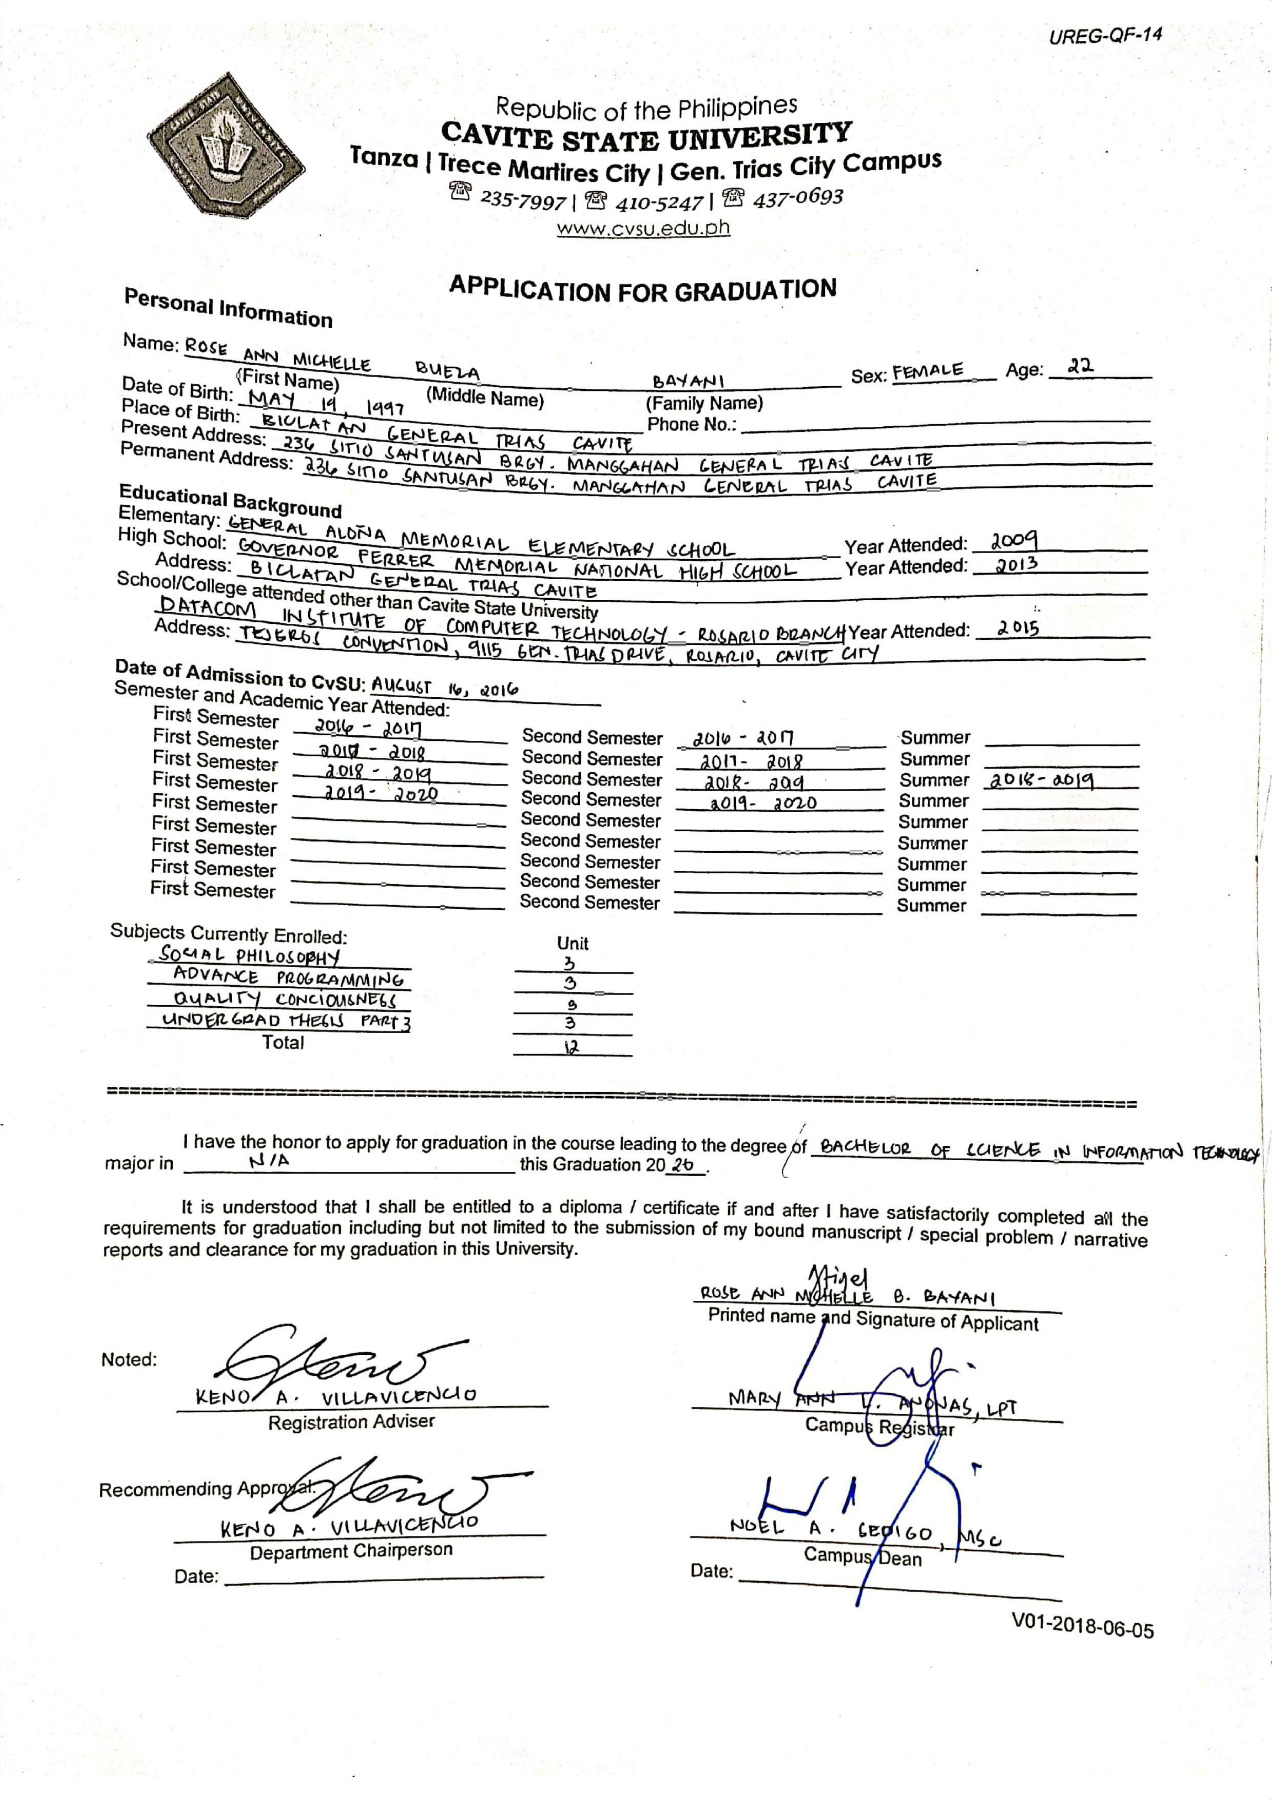 UREG-QF-14
Republic of the Philippines
CAVITE STATE UNIVERSITY
Tanza | Trece Martires City | Gen. Trias City Campus
☎ 235-7997 | ☎ 410-5247 | ☎ 437-0693
www.cvsu.edu.ph
APPLICATION FOR GRADUATION
Personal Information
Name: ROSE ANN MICHELLE BUEZA BAYANI Sex: FEMALE Age: 22
(First Name) (Middle Name) (Family Name)
Date of Birth: MAY 19, 1997 Phone No.:
Place of Birth: BICLATAN GENERAL TRIAS CAVITE
Present Address: 236 SITIO SANTUSAN BRGY. MANGGAHAN GENERAL TRIAS CAVITE
Permanent Address: 236 SITIO SANTUSAN BRGY. MANGGAHAN GENERAL TRIAS CAVITE
Educational Background
Elementary: GENERAL ALOÑA MEMORIAL ELEMENTARY SCHOOL Year Attended: 2009
High School: GOVERNOR FERRER MEMORIAL NATIONAL HIGH SCHOOL Year Attended: 2013
Address: BICLATAN GENERAL TRIAS CAVITE
School/College attended other than Cavite State University
DATACOM INSTITUTE OF COMPUTER TECHNOLOGY - ROSARIO BRANCH Year Attended: 2015
Address: TEJEROS CONVENTION, 9115 GEN. TRIAS DRIVE, ROSARIO, CAVITE CITY
Date of Admission to CvSU: AUGUST 16, 2016
Semester and Academic Year Attended:
First Semester 2016 - 2017 Second Semester 2016 - 2017 Summer
First Semester 2017 - 2018 Second Semester 2017 - 2018 Summer
First Semester 2018 - 2019 Second Semester 2018 - 209 Summer 2018 - 2019
First Semester 2019 - 2020 Second Semester 2019 - 2020 Summer
First Semester Second Semester Summer
First Semester Second Semester Summer
First Semester Second Semester Summer
First Semester Second Semester Summer
First Semester Second Semester Summer
Subjects Currently Enrolled: Unit
SOCIAL PHILOSOPHY 3
ADVANCE PROGRAMMING 3
QUALITY CONCIOUSNESS 3
UNDERGRAD THESIS PART 3 3
Total 12
I have the honor to apply for graduation in the course leading to the degree of BACHELOR OF SCIENCE IN INFORMATION TECHNOLOGY
major in N/A this Graduation 20 20 .
It is understood that I shall be entitled to a diploma / certificate if and after I have satisfactorily completed all the
requirements for graduation including but not limited to the submission of my bound manuscript / special problem / narrative
reports and clearance for my graduation in this University.
ROSE ANN MICHELLE B. BAYANI
Printed name and Signature of Applicant
Noted:
KENO A. VILLAVICENCIO MARY ANN ANONAS, LPT
Registration Adviser Campus Registrar
Recommending Approval:
KENO A. VILLAVICENCIO NOEL A. SEDIGO, MSC
Department Chairperson Campus Dean
Date: Date:
V01-2018-06-05